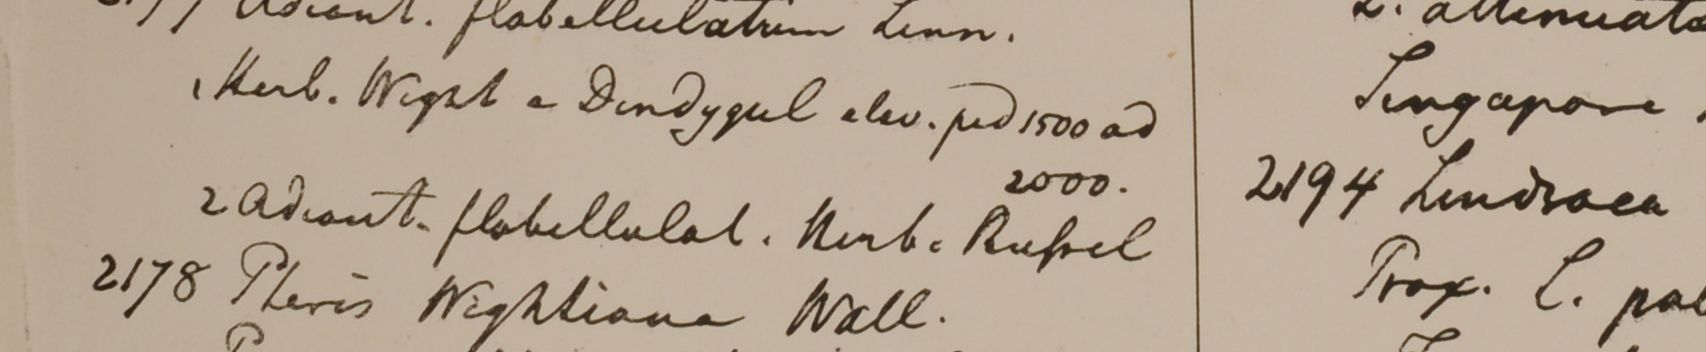 2177 Adiant. flabellulatum Linn.
1 Herb. Wight e Dindygul elev. ped 1500 ad
2000.
2 Adiant. flabellulat. Herb. Russel
2178 Pteris Wightiana Wall.
L. attenuata
Singapore
2194 Lindsaea
Prox. L.